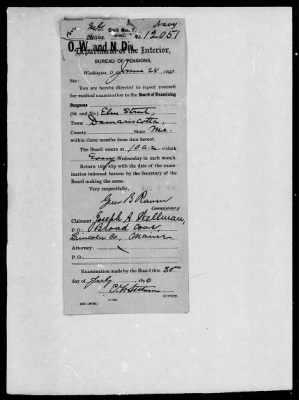 Navy
Civil No. 7
Division
No. 12051
O. W. and N. Div.
Department of the Interior,
BUREAU OF PENSIONS,
Washington, D. C., June 24, 1890
SIR:
You are hereby directed to report yourself
for medical examination to the Board of Examining
Surgeons
(St. and No.) Elm Street,
Town Damariscotta,
County State Me.
within three months from date hereof.
The Board meets at 10 a.m. o'clock
Every Wednesday in each month.
Return this slip with the date of the exam-
ination indorsed hereon by the Secretary of the
Board making the same.
Very respectfully,
Green B Raum
Commissioner
Claimant Joseph A. Stellman,
P. O. Broad Cove,
Lincoln Co, Maine
Attorney:
P. O.:
Examination made by the Board this 30th
day of July 1890
Secretary.